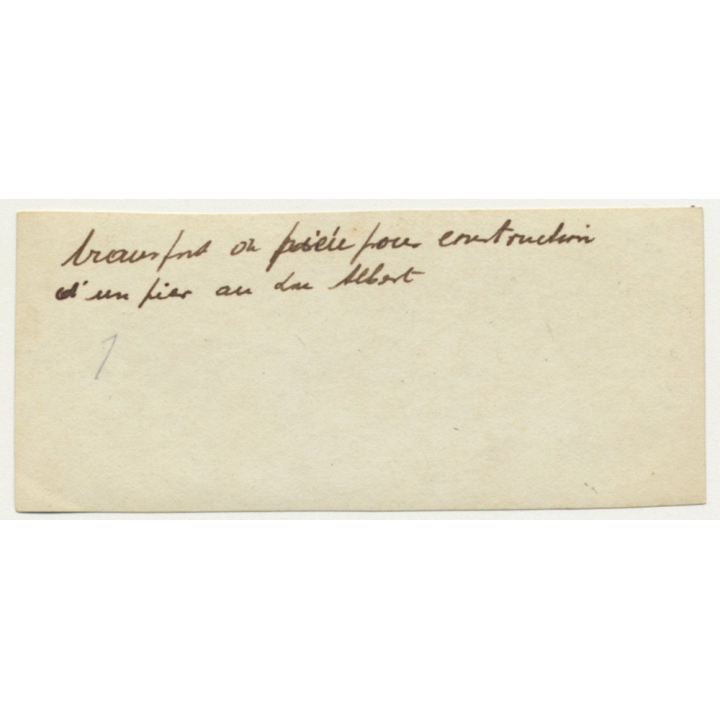 transport de pièce pour construction
d'un pier au Lac Albert
1